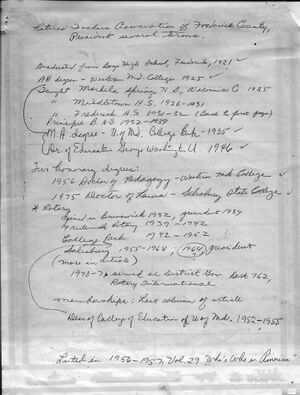 Retired Teachers Association of Frederick County,
President several terms.
Graduated from Boys High School, Frederick, 1921 ✓
AB degree - Western Md College 1925 ✓
Taught Mardela Springs H.S., Wicomico C 1925
" Middletown H.S. 1926-1931
" Frederick H.S. 1931-32 (Back to first page)
Principal B.
M.A. degree - U of Md. College Park - 1935 ✓
Dr. of Education George Washington U. 1946 ✓
Two honorary degrees:
1956 Doctor of Pedagogy - Western Md College ✓
1975 Doctor of Laws - Salisbury State College ✓
* Rotary
Joined in Brunswick 1932, president 1934
Frederick Rotary 1939-1942
College Park 1942-1952
Salisbury 1955-1968. (1964) president
(more in article)
1970-71 served as District Gov Dist 762,
Rotary International
memberships: Last column of article
Dean of College of Education of U of Md. 1952-1955
Listed in 1956-1957, Vol. 29 "Who's Who in America"